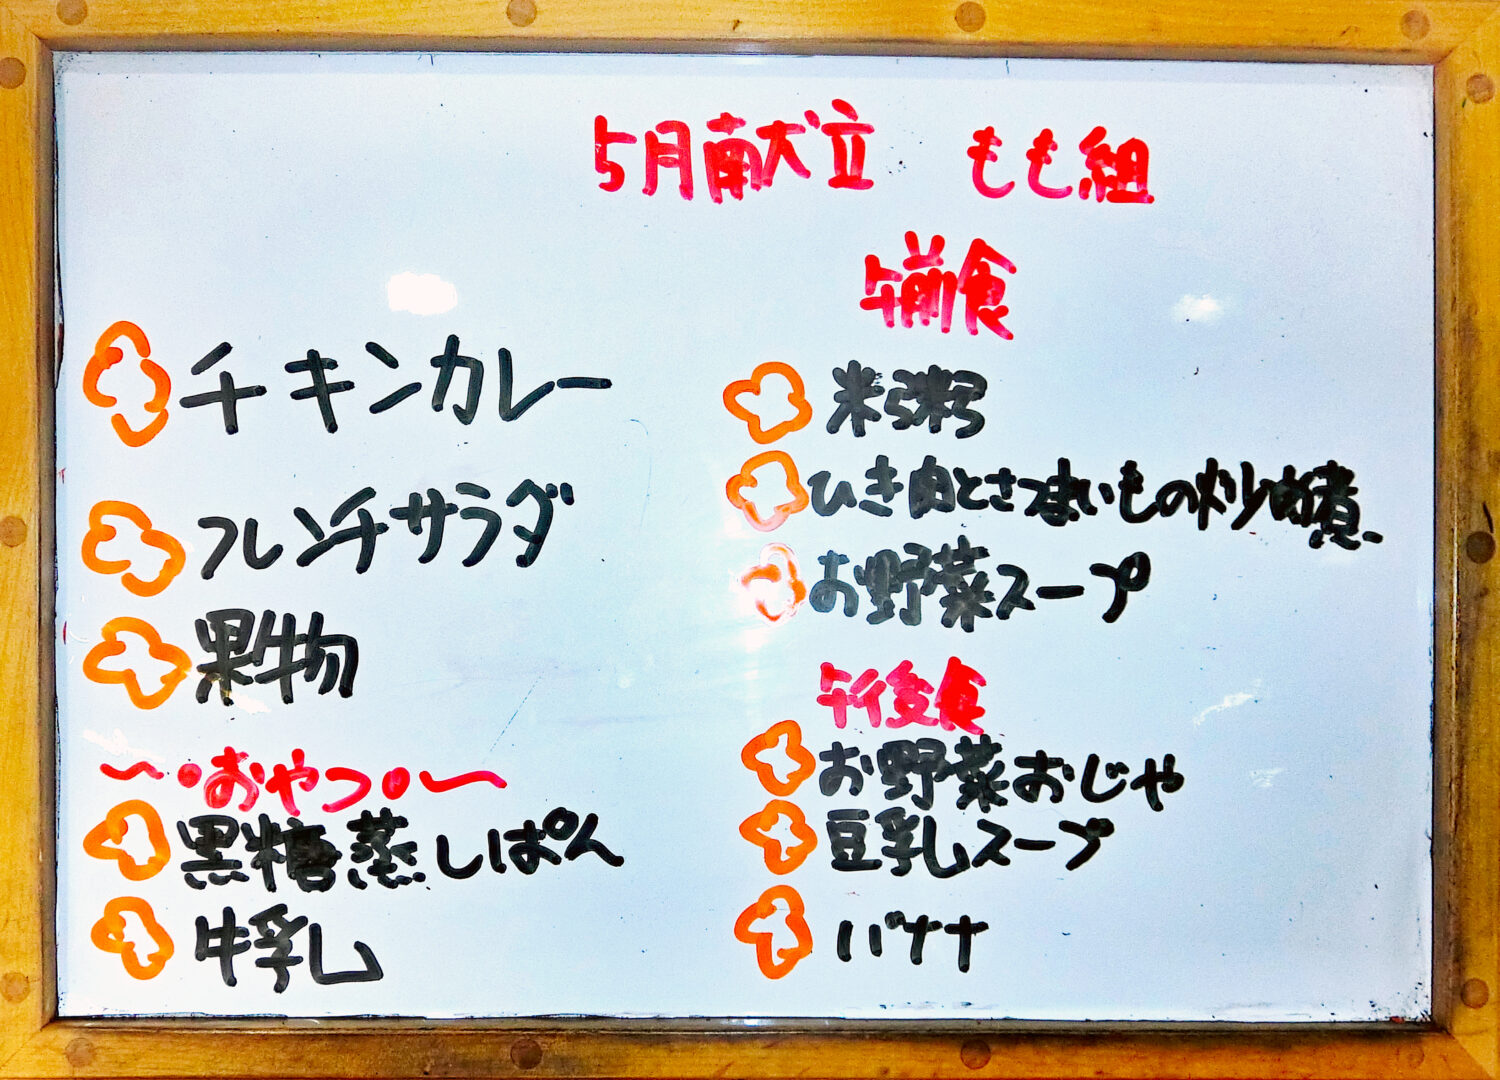 5月献立 もも組
チキンカレー
フレンチサラダ
果物
〜・おやつ・〜
黒糖蒸しぱん
牛乳
午前食
米粥
ひき肉とさつまいもの炒め煮
お野菜スープ
午後食
お野菜おじや
豆乳スープ
バナナ